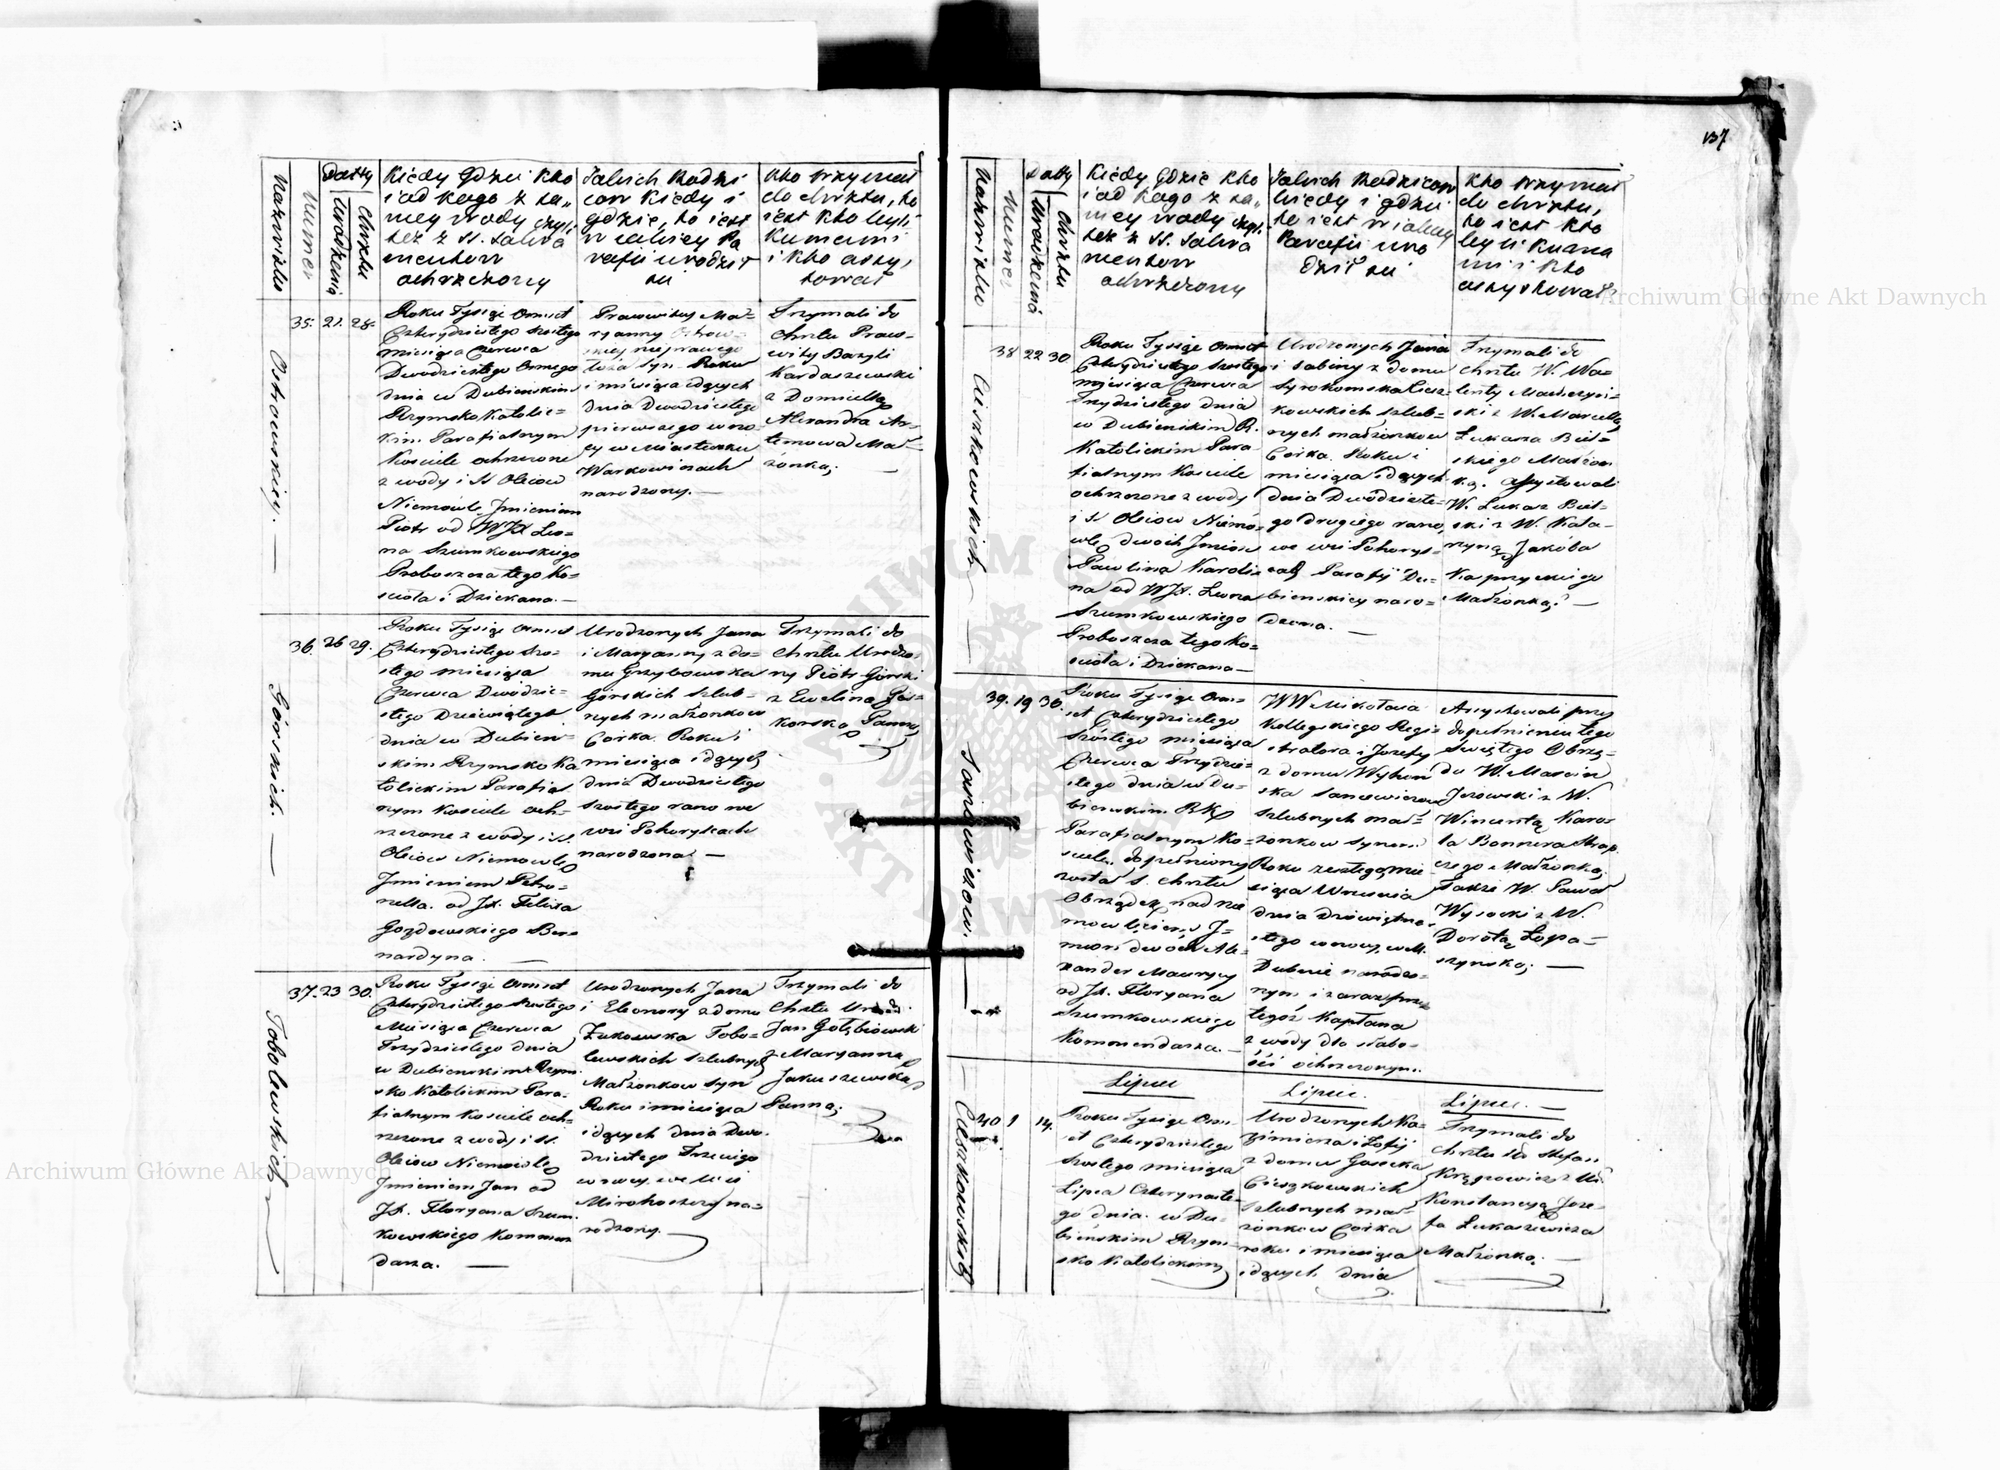 137
Nazwisko
Numer
Datty
Urodzenia
Chrztu
Kiedy Gdzie kto
i od kogo z sa„
mey wody czyli
też z SS. Sakra
mentow
ochrzczony
Jakich Rodzi
cow kiedy i
gdzie, to iest
w iakiey Pa
rafii urodził
się
Kto trzymał
do chrztu, to
iest kto byli
Kumami
i kto assy,
stował
35. 21. 28.
Ostrowskiey.
Roku Tysiąc Osmset
Czterydziestego szostego
miesiąca Czerwca
Dwodziestego Osmego
dnia w Dubieńskim
Rzymsko Katolic=
kim Parafialnym
Kościele ochrzcone
z wody i SS Oleiow
Niemowle Jmieniem
Piotr od WJX Leo=
na Szumkowskiego
Proboszcza tego Ko=
scioła i Dziekana.—
Prawowitey Ma=
ryanny Ostrow=
skiej nieprawego
łoża Syn. Roku
i miesiąca idących
dnia Dwodziestego
pierwszego w no=
cy w Miasteczku
Warkowiczach
narodzony.—
Trzymali do
Chrztu Praw=
wity Bazyli
Kardaszewski
z Domicellą
Alexandra Ar=
temowa Mał=
żonką;
36. 26 29.
Górskich.
Roku Tysiąc Osmset
Czterydziestego Szo=
stego miesiąca
Czerwca Dwodzie=
stego Dziewiątego
dnia w Dubien=
skim Rzymsko Ka
tolickim Parafial
nym Kosciele och=
rzcone z wody i SS.
Oleiow Niemowle
Jmieniem Petro=
nella. od JX. Felixa
Gozdowskiego Ber=
nardyna.
Urodzonych Jana
i Maryanny z do=
mu Grzybowska
Górskich Szlub=
nych małżonkow
Corka. Roku i
miesiąca idących
dnia Dwodziestego
szostego rano we
wsi Pohorylcach
narodzona.—
Trzymali do
Chrztu Urodzo
ny Piotr Górski
z Eweliną Gór=
korską Panną;
37. 23 30.
Tobolewskich
Roku Tysiąc Osmset
Czterydziestego szostego
Miesiąca Czerwca
Trzydziestego dnia
w Dubienskim Rzym
sko Katolickim Para=
fialnym Kościele och=
rzcone z wody i SS.
Oleiow Niemowle
Jmieniem Jan od
JX. Floryana Szum
kowskiego Kommen
darza.
Urodzonych Jana
i Eleonory z domu
Żukowska Tobo=
lewskich szlubnych
Małżonkow Syn
Roku i miesiąca
idących dnia Dwo.
dziestego Trzeciego
w nocy we wsi
Mirohoszczy na=
rodzony.
Trzymali do
Chrztu Urodz:
Jan Gołębiowski
z Maryanną
Jakuszewską
Panną;
Nazwisko
Numer
Datty
Urodzenia
Chrztu
Kiedy Gdzie kto
i od kogo z sa„
mey wody czyli
też z SS. Sakra
mentow
ochrzczony
Jakich Rodzicow
kiedy i gdzie
to iest w iakiey
Parafii uro
dził się
Kto trzymał
do chrztu,
to iest kto
byli Kuma
mi i kto
assystował
38 22 30
Ciszkowskich
Roku Tysiąc Osmset
Czterydziestego Szostego
miesiąca Czerwca
Trzydziestego dnia
w Dubienskim R.
Katolickim Para
fialnym Kosciele
ochrzcone z wody
i SS Oleiow Niemo=
wle dwoch Jmion
Paulina Karoli
na od WJX. Leona
Szumkowskiego
Proboszcza tego Ko=
scioła i Dziekana—
Urodzonych Jana
i Sabiny z domu
Syrokomska Cisz=
kowskich szlub=
nych małżonkow
Corka. Roku i
miesiąca idących
dnia Dwodzieste=
go drugiego rano,
we wsi Pohoryl=
cach Parafij Du=
bienskiey naro=
dzona.
Trzymali do
chrztu W. Wa=
lenty Madezyń=
ski z W. Marcellą
Łukasza Biel=
skiego Małżon
ką. Assystowali
W. Łukasz Biel=
ski z W. Kata=
rzyną Jakóba
Kasprzyckiego
Małżonką;
39. 19 30.
Sancewiczow.
Roku Tysiąc Osm=
set Czterydziestego
Szóstego miesiąca
Czerwca Trzydzie=
stego dnia w Du=
bieńskim RK
Parafialnym Ko=
sciele dopełniony
został S. Chrztu
Obrządek nad nie
mowlęciem J=
mion dwóch Ale
xander Maurycy
od JX. Floryana
Szumkowskiego
Kommendarza.—
WW Mikołaia
Kolleskiego Regi=
stratora i Jozefy
z domu Wyhow
ska Sancewiczow
szlubnych mał=
żonkow synem.
Roku zeszłego mie
siąca Września
dnia Dziewiętna=
stego w nocy, w M.
Dubnie narodzo=
nym i zaraz przez
tegoż Kapłana
z wody dla słabo=
ści ochrzconym.
Assystowali przy
dopełnieniu tego
Świętego Obrzą=
du W. Marcin
Jerowski z W.
Wincentą Karo=
la Bonnera Strap
czego Małżonką;
Także W. Paweł
Wysocki z W.
Dorotą Łopa=
szyńską;
40. 9 14.
Cieszkowskich
Lipiec
Roku Tysiąc Osm=
set Czterydziestego
Szostego miesiąca
Lipca Czternaste=
go dnia w Du=
bieńskim Rzym=
sko Katolickim
Lipiec.
Urodzonych Ka=
zimierza i Zofij
z domu Gasecka
Cieszkowskich
szlubnych mał=
żonkow Corka
roku i miesiąca
idących dnia
Lipiec.
Trzymali do
chrztu Ur. Stefan
Konstancyą Joze=
fa Łukaszewicza
Małżonką.
Archiwum Główne Akt Dawnych
Archiwum Główne Akt Dawnych